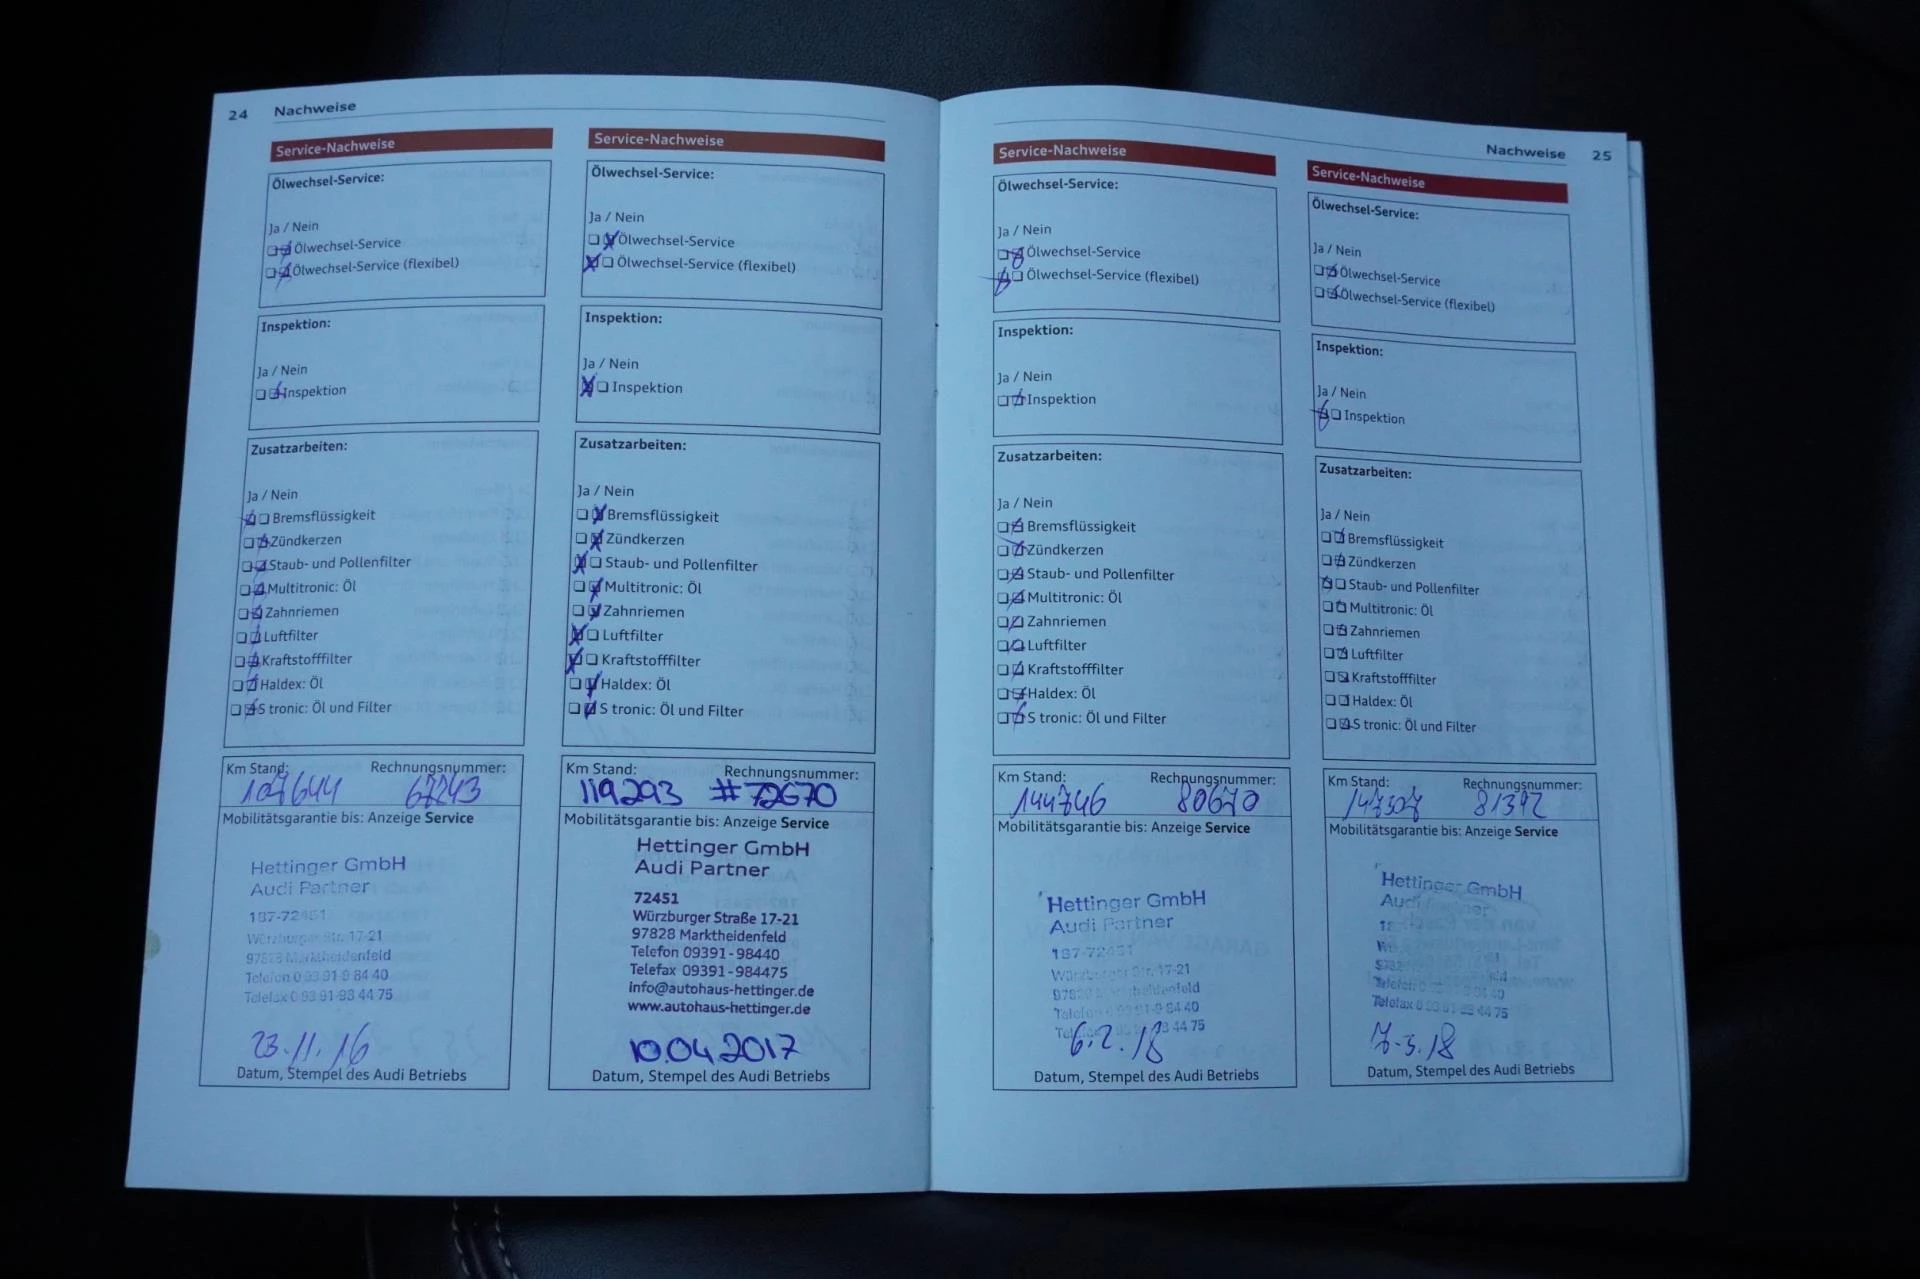 24 Nachweise
Service-Nachweise
Ölwechsel-Service:
Ja / Nein
Ölwechsel-Service
Ölwechsel-Service (flexibel)
Inspektion:
Ja / Nein
Inspektion
Zusatzarbeiten:
Ja / Nein
Bremsflüssigkeit
Zündkerzen
Staub- und Pollenfilter
Multitronic: Öl
Zahnriemen
Luftfilter
Kraftstofffilter
Haldex: Öl
S tronic: Öl und Filter
Km Stand: Rechnungsnummer:
107644 67243
Mobilitätsgarantie bis: Anzeige Service
Hettinger GmbH
Audi Partner
187-72451
Würzburger Str. 17-21
97828 Marktheidenfeld
Telefon 0 93 91-9 84 40
Telefax 0 93 91-98 44 75
23.11.16
Datum, Stempel des Audi Betriebs
Service-Nachweise
Ölwechsel-Service:
Ja / Nein
Ölwechsel-Service
Ölwechsel-Service (flexibel)
Inspektion:
Ja / Nein
Inspektion
Zusatzarbeiten:
Ja / Nein
Bremsflüssigkeit
Zündkerzen
Staub- und Pollenfilter
Multitronic: Öl
Zahnriemen
Luftfilter
Kraftstofffilter
Haldex: Öl
S tronic: Öl und Filter
Km Stand: Rechnungsnummer:
119293 #72670
Mobilitätsgarantie bis: Anzeige Service
Hettinger GmbH
Audi Partner
72451
Würzburger Straße 17-21
97828 Marktheidenfeld
Telefon 09391-98440
Telefax 09391-984475
info@autohaus-hettinger.de
www.autohaus-hettinger.de
10.04.2017
Datum, Stempel des Audi Betriebs
Nachweise 25
Service-Nachweise
Ölwechsel-Service:
Ja / Nein
Ölwechsel-Service
Ölwechsel-Service (flexibel)
Inspektion:
Ja / Nein
Inspektion
Zusatzarbeiten:
Ja / Nein
Bremsflüssigkeit
Zündkerzen
Staub- und Pollenfilter
Multitronic: Öl
Zahnriemen
Luftfilter
Kraftstofffilter
Haldex: Öl
S tronic: Öl und Filter
Km Stand: Rechnungsnummer:
144746 80670
Mobilitätsgarantie bis: Anzeige Service
Hettinger GmbH
Audi Partner
187-72451
Würzburger Str. 17-21
97828 Marktheidenfeld
Telefon 0 93 91-9 84 40
6.2.18
Datum, Stempel des Audi Betriebs
Service-Nachweise
Ölwechsel-Service:
Ja / Nein
Ölwechsel-Service
Ölwechsel-Service (flexibel)
Inspektion:
Ja / Nein
Inspektion
Zusatzarbeiten:
Ja / Nein
Bremsflüssigkeit
Zündkerzen
Staub- und Pollenfilter
Multitronic: Öl
Zahnriemen
Luftfilter
Kraftstofffilter
Haldex: Öl
S tronic: Öl und Filter
Km Stand: Rechnungsnummer:
147307 81392
Mobilitätsgarantie bis: Anzeige Service
Hettinger GmbH
Audi Partner
Telefax 0 93 91-98 44 75
7.3.18
Datum, Stempel des Audi Betriebs